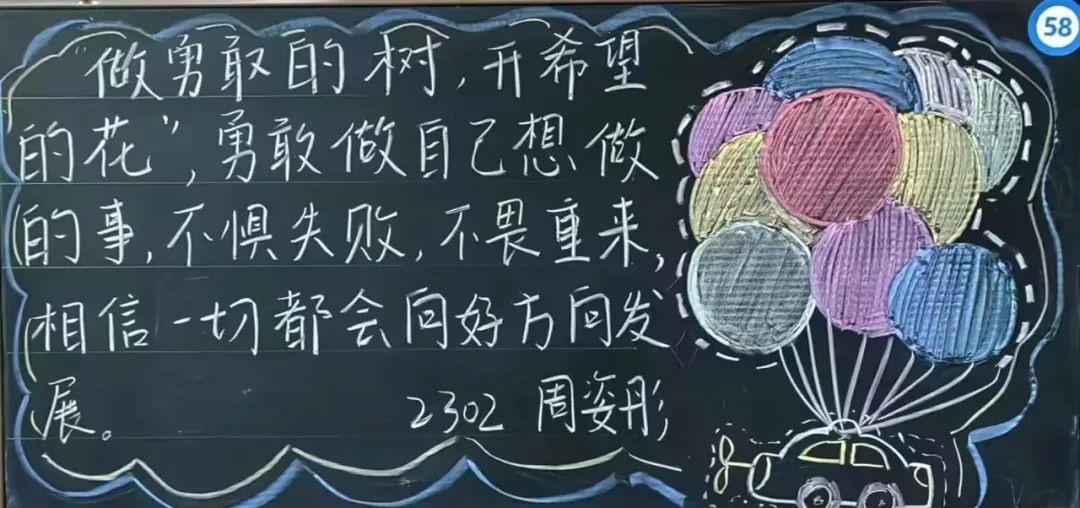 “做勇敢的树，开希望
的花”，勇敢做自己想做
的事，不惧失败，不畏重来，
相信一切都会向好方向发
展。
2302 周姿彤
58